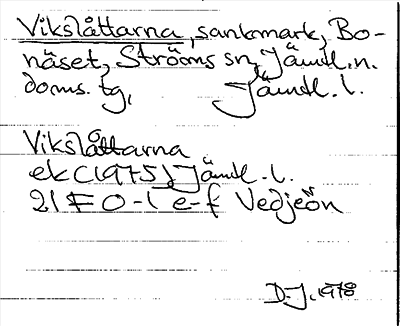 Vikslåttarna, sankmark, Bo-
näset, Ströms sn, Jämtl. n.
doms. tg, Jämtl. l.
Vikslåttarna
ek (1975) Jämtl. l.
21 F 0-1 e-f Vedjeön
D-J. 1978